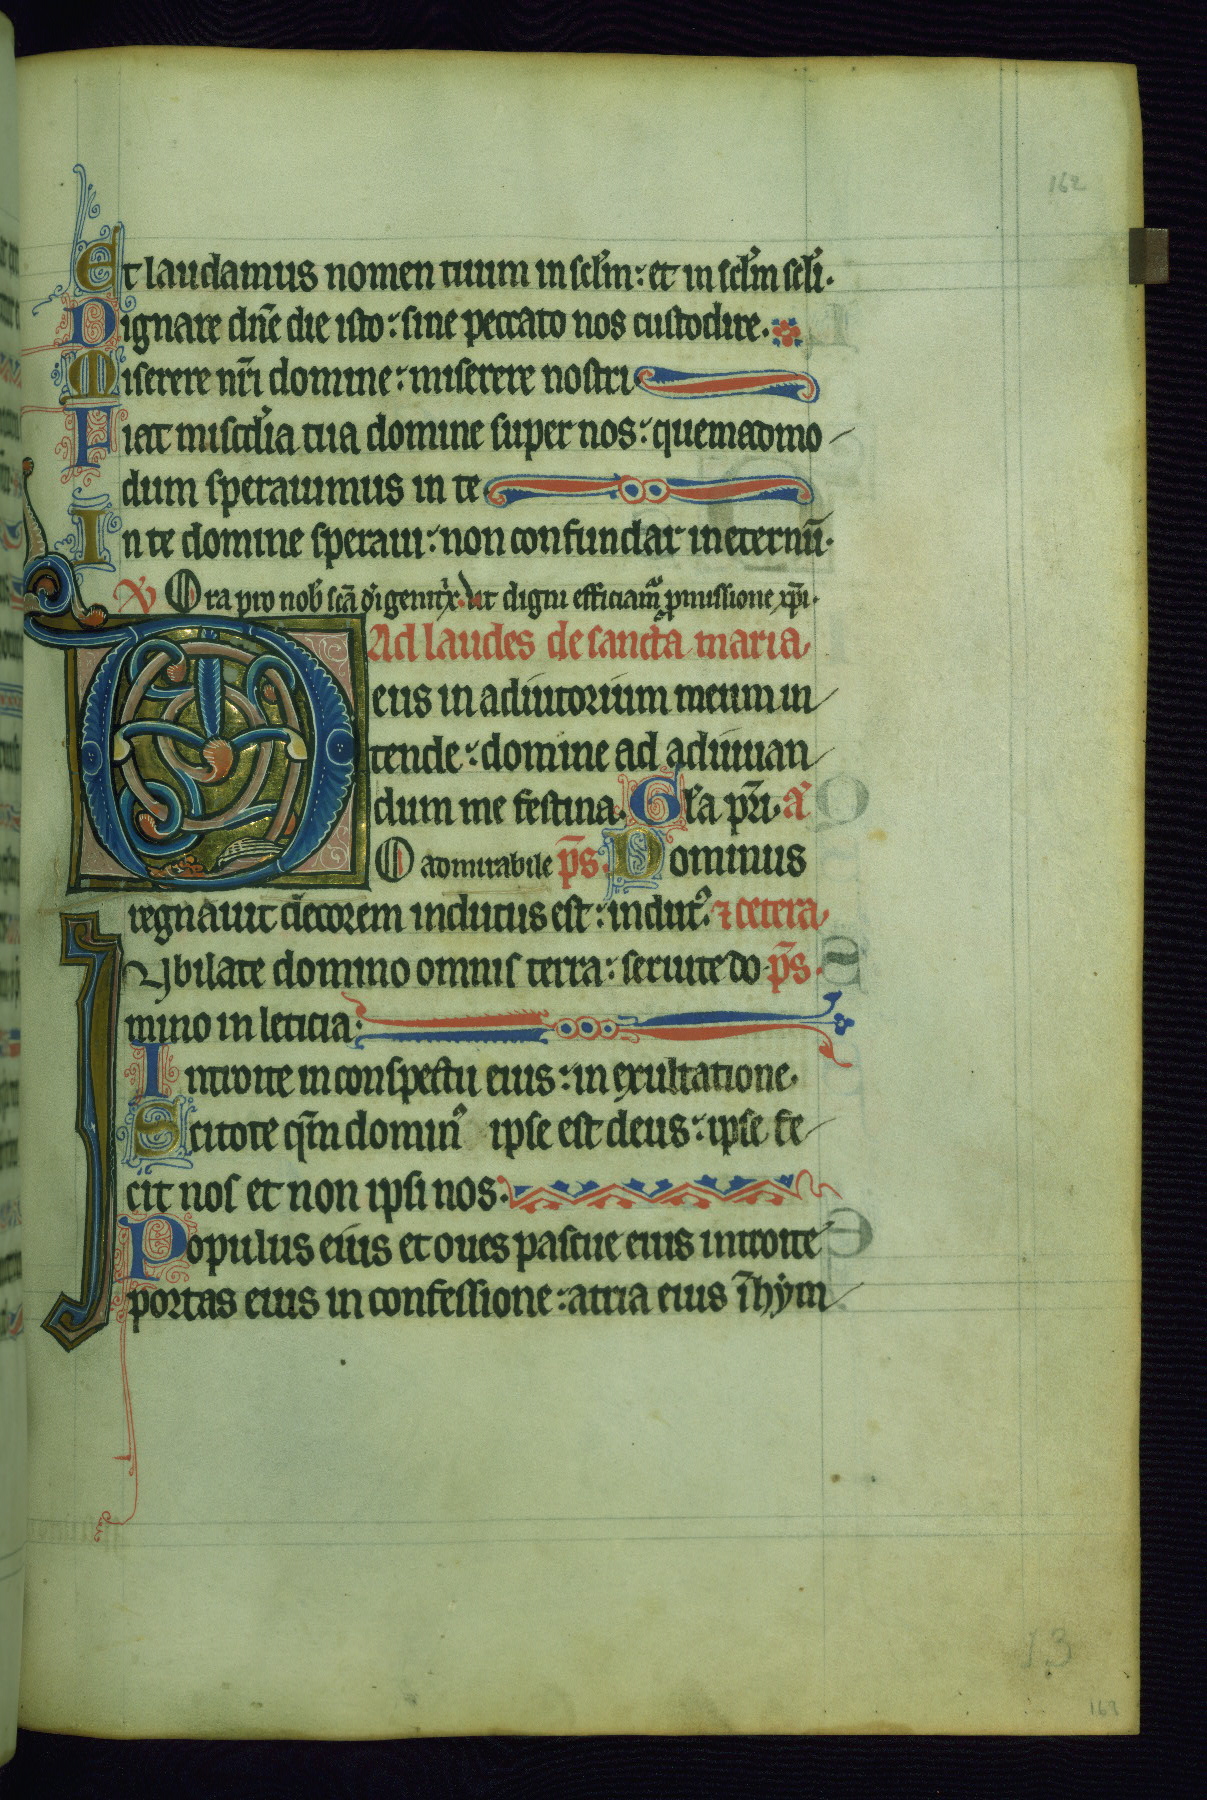 162
Et laudamus nomen tuum in sclm: et in sclm scli.
Dignare dñe die isto: sine peccato nos custodire.
Miserere nr̃i domine: miserere nostri
Fiat miscdia tua domine super nos: quemadmo
dum sperauimus in te
In te domine speraui: non confundar in eternũ.
V Ora pro nob scã dĩ genitx. Vt digni efficiam̃ pmissione xp̃i.
Ad laudes de sancta maria
Deus in adiutorium meum in
tende: domine ad adiuuan
dum me festina. Gla pr̃i. a
O admirabile p̃s. Dominus
regnauit decorem indutus est: indut᷒. ⁊ cetera
Jvbilate domino omnis terra: seruite do p̃s.
mino in leticia.
Introite in conspectu eius: in exultatione.
Scitote qm̃ domin᷒ ipse est deus: ipse fe
cit nos et non ipsi nos.
Populus eius et oues pascue eius introite
portas eius in confessione: atria eius ĩ hym
13